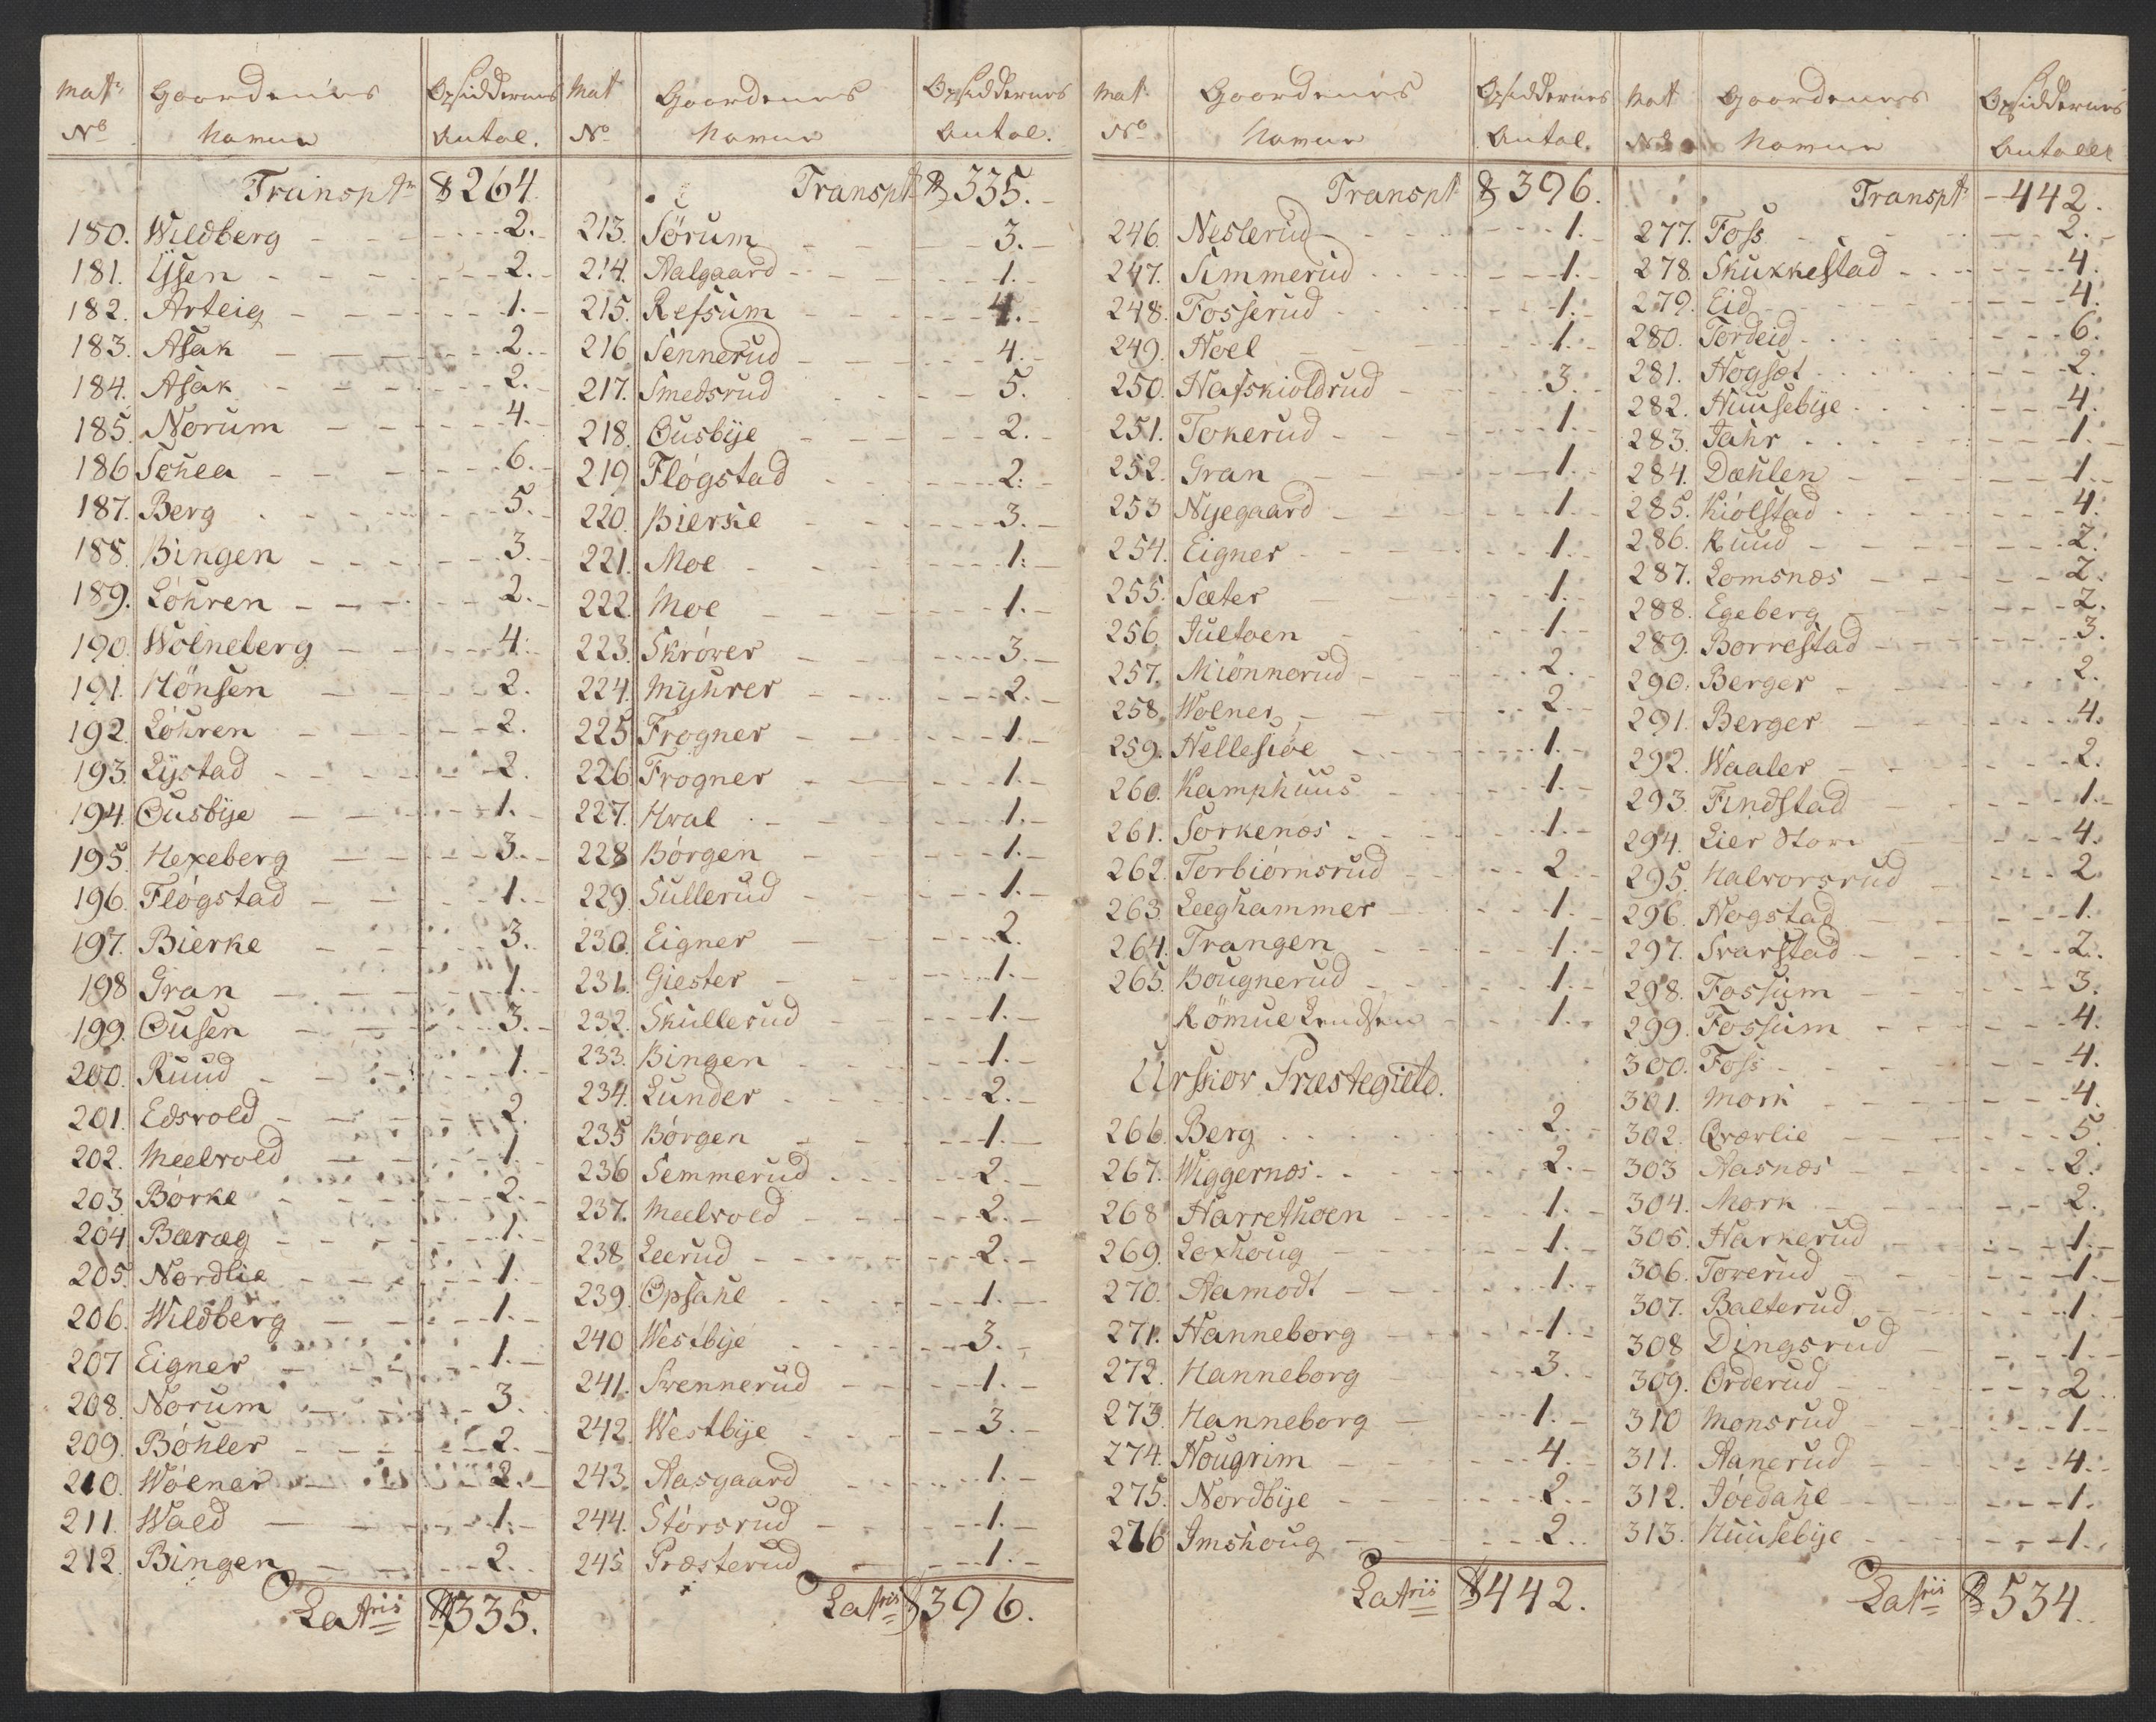 Matr Gaardenes Opsiddernes
No Namne Antal.
Transptr 264.
180. Wildberg 2.
181. Ijsen 2.
182. Arteig 1.
183. Asak 2.
184. Asak 2.
185. Norum 4.
186 Schea 6.
187. Berg 5.
188. Bingen 3.
189. Løhren 2.
190. Wolneberg 4.
191. Hönsen 2.
192. Løhren 2.
193. Lystad 2.
194. Ousbye 1.
195. Hexeberg 3.
196. Fløgstad 1.
197. Bierke 3.
198 Gran 1.
199. Ousen 3.
200. Ruud 1.
201. Edsvold 2.
202. Meelvold 1.
203. Børke 2.
204. Bæræg 1.
205. Nordlie 1.
206. Wildberg 1.
207 Eigner 1.
208. Norum 3.
209. Bøhler 2.
210. Wølner 2.
211. Wald 1.
212. Bingen 2.
Latris 335.
Mat Gaardenes Opsiddernes
No Namne Antal.
Transpt 335.
213. Sørum 3.
214. Aalgaard 1.
215. Refsum 4.
216. Sennerud 4.
217. Smedsrud 5.
218. Ousbye 2.
219 Fløgstad 2.
220. Bierke 3.
221. Moe 1.
222. Moe 1.
223. Skrøver 3.
224. Myhrer 2.
225 Frogner 1.
226 Frogner 1.
227. Hval 1.
228 Børgen 1.
229. Sullerud 1.
230. Eigner 2.
231. Giester 1.
232. Skullerud 1.
233. Bingen 1.
234. Lunder 2.
235 Børgen 1.
236 Semmerud 2.
237. Meelvold 2.
238 Leerud 2.
239. Opsahl 1.
240 Westbye 3.
241. Svennerud 1.
242. Westbye 3.
243. Aasgaard 1.
244. Størsrud 1.
245 Præsterud 1.
Latris 396.
Mat Gaardenes Opsiddernes
No Namne Antal.
Transpt 396.
246. Neslerud 1.
247. Simmerud 1.
248. Fosserud 1.
249. Hoel 1.
250. Hafskioldrud 3.
251. Tokerud 1.
252. Gran 1.
253 Nyegaard 1.
254. Eigner 1.
255. Sæter 1.
256. Jultoen 1.
257. Miönnerud 2.
258. Wolner 2.
259. Hellesiøe 1.
260. Kamphuus 1.
261. Sorkenæs 1.
262. Torbiørnsrud 2.
263. Leeghammer 1.
264. Trangen 1.
265. Bougnerud 1.
Kömue 1.
Urskov Præstegield.
266. Berg 2.
267. Wiggernæs 2.
268 Harrethoen 1.
269. Loxhoug 1.
270. Aamodt 1.
271. Hanneborg 1.
272. Hanneborg 3.
273. Hanneborg 1.
274. Hougrim 4.
275. Nordbye 2.
276 Imshoug 2.
Latrii 442.
Matt Gaardenes Opsiddernes
No Namne Antall
Transpt 442.
277. Foss 2.
278. Skukkestad 4.
279. Eid 4.
280. Tordeid 6.
281. Høgset 2.
282. Huusebye 4.
283. Jahr 1.
284. Dæhlen 1.
285. Kiølstad 4.
286. Ruud 2.
287. Lomsnæs 2.
288. Egeberg 2.
289. Borrestad 3.
290. Berger 2.
291. Berger 4.
292. Waaler 2.
293. Findstad 1.
294. Lier Store 4.
295. Halvorsrud 2.
296. Hogstad 1.
297. Svarstad 2.
298. Fossum 3.
299. Fossum 4.
300. Foss 4.
301. Mork 4.
302. Qværlie 5.
303 Aasnæs 2.
304. Mork 2.
305. Harkerud 1.
306. Toverud 1.
307. Balterud 1.
308 Dingsrud 1.
309. Orderud 2.
310 Monsrud 1.
311. Aanerud 4.
312. Jøedahl 1.
313. Huusebye 1.
Latrii 534.